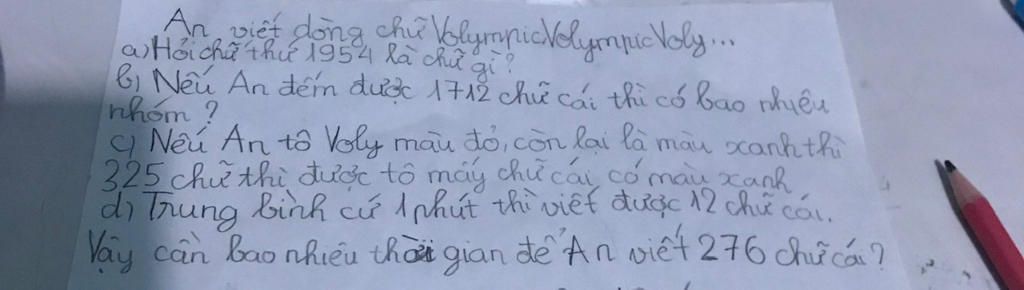 An viết dòng chữ VolympicVolympicVoly...
a) Hỏi chữ thứ 1954 là chữ gì?
b) Nếu An đếm được 1712 chữ cái thì có bao nhiêu
nhóm?
c) Nếu An tô Voly màu đỏ, còn lại là màu xanh thì
325 chữ thì được tô mấy chữ cái có màu xanh
d) Trung bình cứ 1 phút thì viết được 12 chữ cái.
Vậy cần bao nhiêu thời gian để An viết 276 chữ cái?